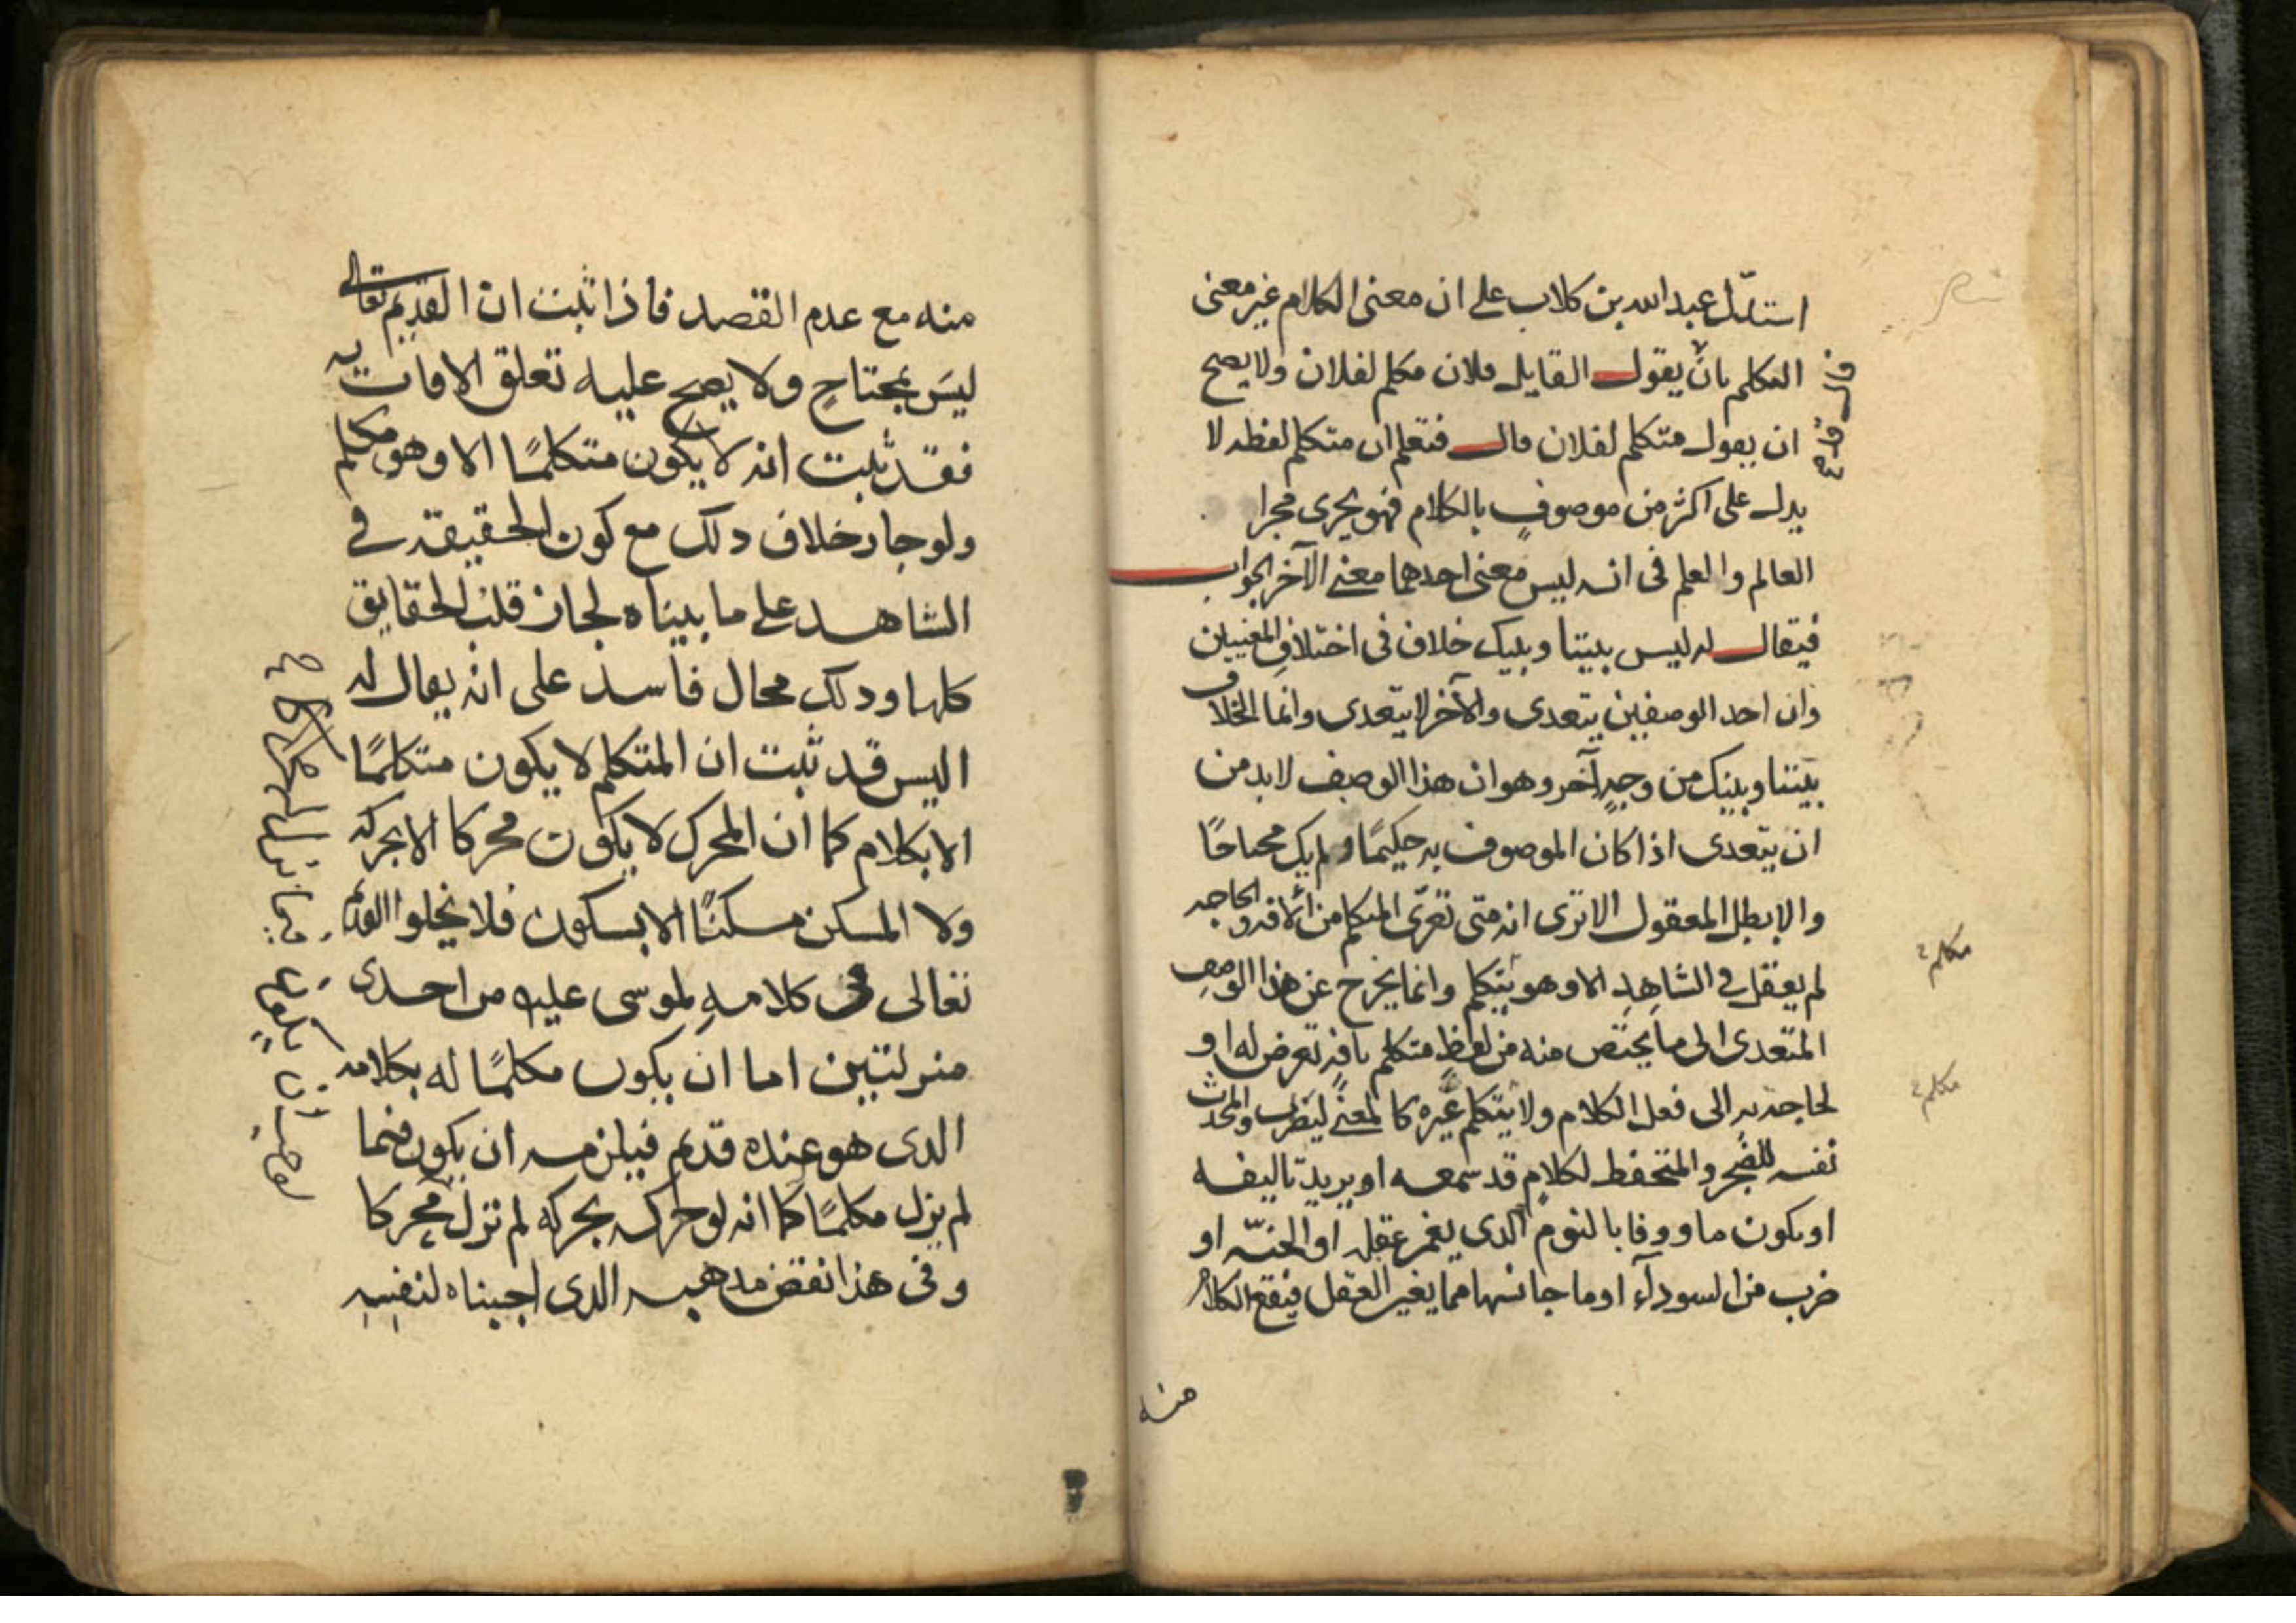 استدلّ عبد الله بن كلاب على ان معنى الكلام غير معنى
المكلم بان يقول القايل فلان مكلم لفلان ولا يصح
ان يقول متكلم لفلان قال فتعلم ان متكلم لفظه لا
يدل على اكثر من موصوفٍ بالكلام فهو يجرى مجرا
العالم والعلم فى انه ليس معنى احدهما معنى الآخر الجواب
فيقال له ليس بيننا وبينك خلاف فى اختلاف المعنيين
وان احد الوصفين يتعدى والآخر لا يتعدى وانما الخلاف
بيننا وبينك من وجهٍ آخر وهو ان هذا الوصف لا بد من
ان يتعدى اذا كان الموصوف به حكيمًا ولم يك محتاجًا
والا بطل المعقول الا ترى انه متى تعرّى المتكلم من الآفة والحاجه
لم يعقل فى الشاهد الا وهو يتكلم وانما يخرج عن هذا الوصف
المتعدى الى ما يختص منه من لفظ متكلم بافةٍ تعرض له او
لحاجة به الى فعل الكلام ولا يتكلم غيره كالمغنى ليطرب والمحدث
نفسه للضجر والمتحفظ لكلامٍ قد سمعه او يريد تاليفه
او يكون ماووفا بالنوم الدى يغمر عقله او الجنّه او
ضرب من السودآء او ما جانسها مما يغير العقل فيقع الكلام
منه
مكلم
مكلم
منه مع عدم القصد فاذا ثبت ان القديم تعالى
ليس بمحتاجٍ ولا يصح عليه تعلق الافات به
فقد ثبت انه لا يكون متكلمًا الا وهو مكلم
ولو جاز خلاف دلك مع كون الحقيقة في
الشاهد على ما بيناه لجاز قلب الحقايق
كلها ودلك محال فاسد على انه يقال له
اليس قد ثبت ان المتكلم لا يكون متكلمًا
الا بكلام كما ان المحرك لا يكون محركا الا بحركه
ولا المسكن مسكنًا الا بسكون فلا يخلوا القديم
تعالى فى كلامه لموسى عليه من احدى
منزلتين اما ان يكون مكلمًا له بكلامه
الدى هو عنده قديم فيلزمه ان يكون فيما
لم يزل مكلمًا كما انه لو حركه بحركه لم تزل محركا
وفى هذا نقض مدهبه الدى اجبناه لنفسه